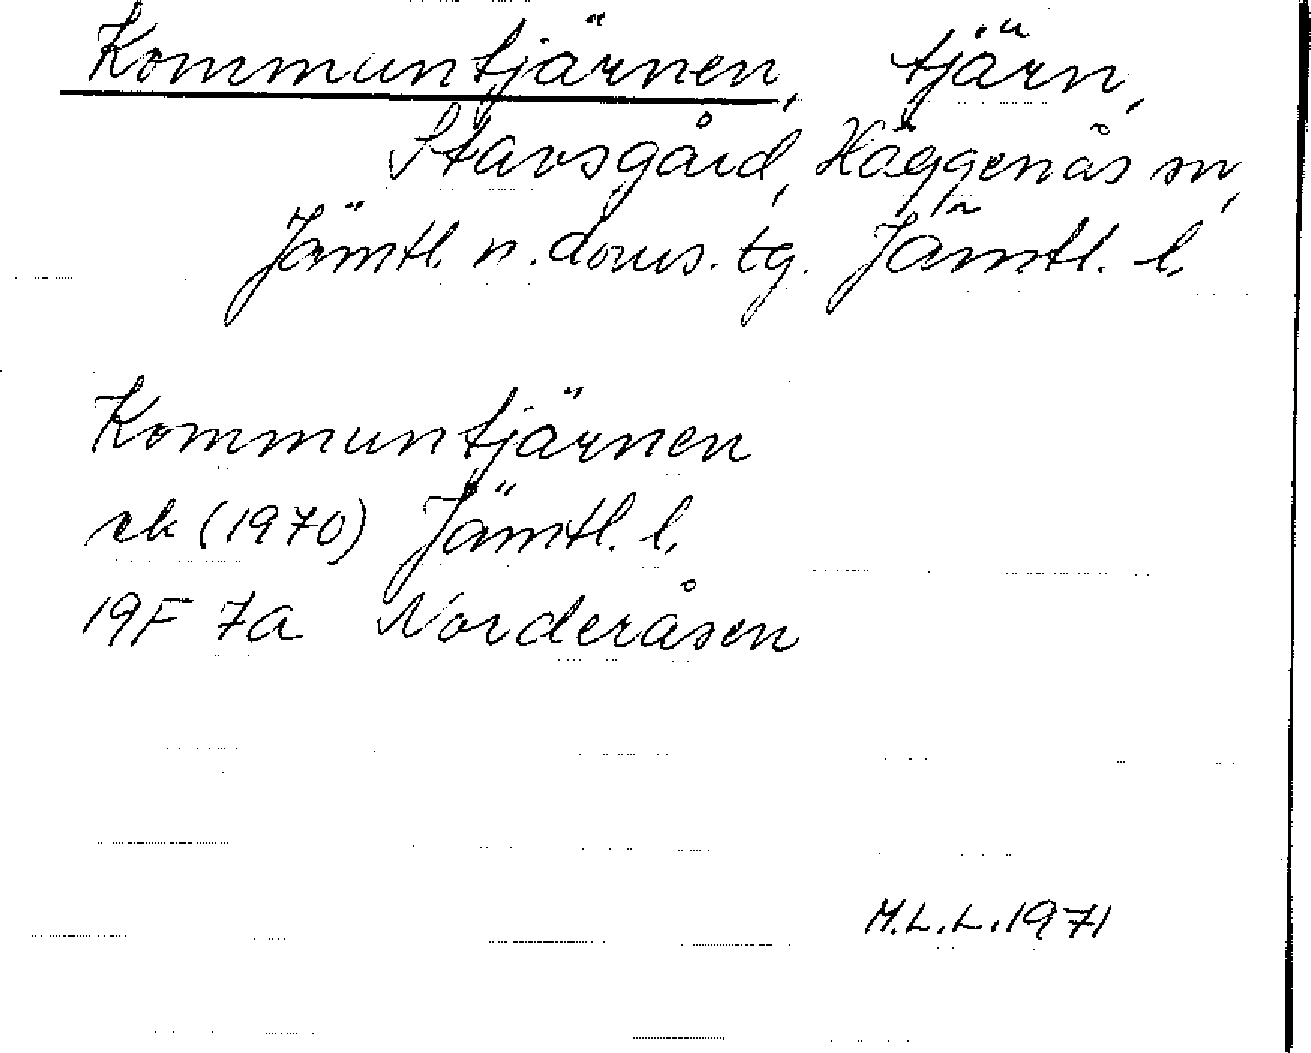 Kommuntjärnen, tjärn,
Stavsgård, Häggenås sn,
Jämtl. n. doms. tg. Jämtl. l.
Kommuntjärnen
ek (1970) Jämtl. l.
19F 7a Norderåsen
M.L.L. 1971